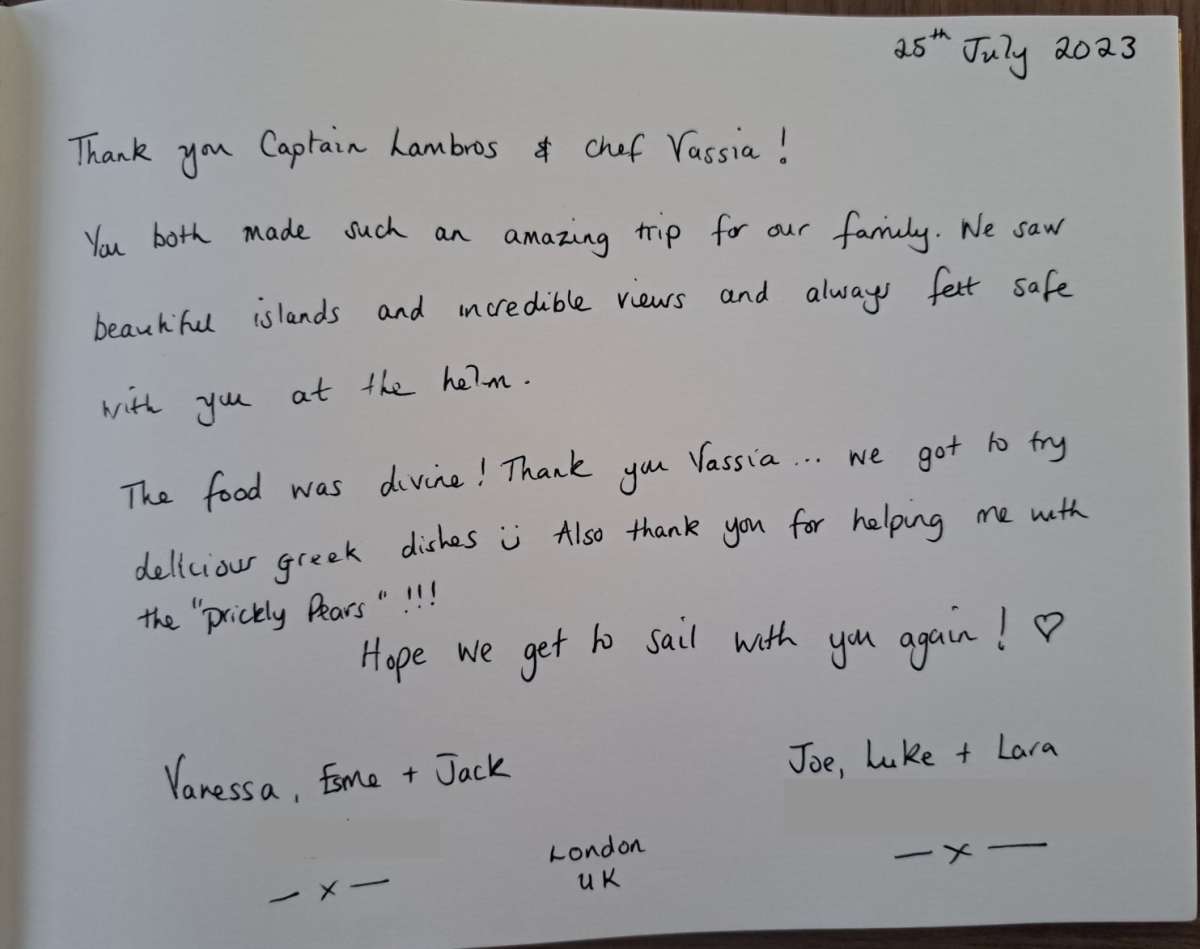 25th July 2023
Thank you Captain Lambros & Chef Vassia!
You both made such an amazing trip for our family. We saw
beautiful islands and incredible views and always felt safe
with you at the helm.
The food was divine! Thank you Vassia... we got to try
delicious greek dishes ü Also thank you for helping me with
the "Prickly Pears" !!!
Hope we get to sail with you again! ♡
Vanessa, Esme + Jack
Joe, Luke + Lara
— x —
London
UK
— x —